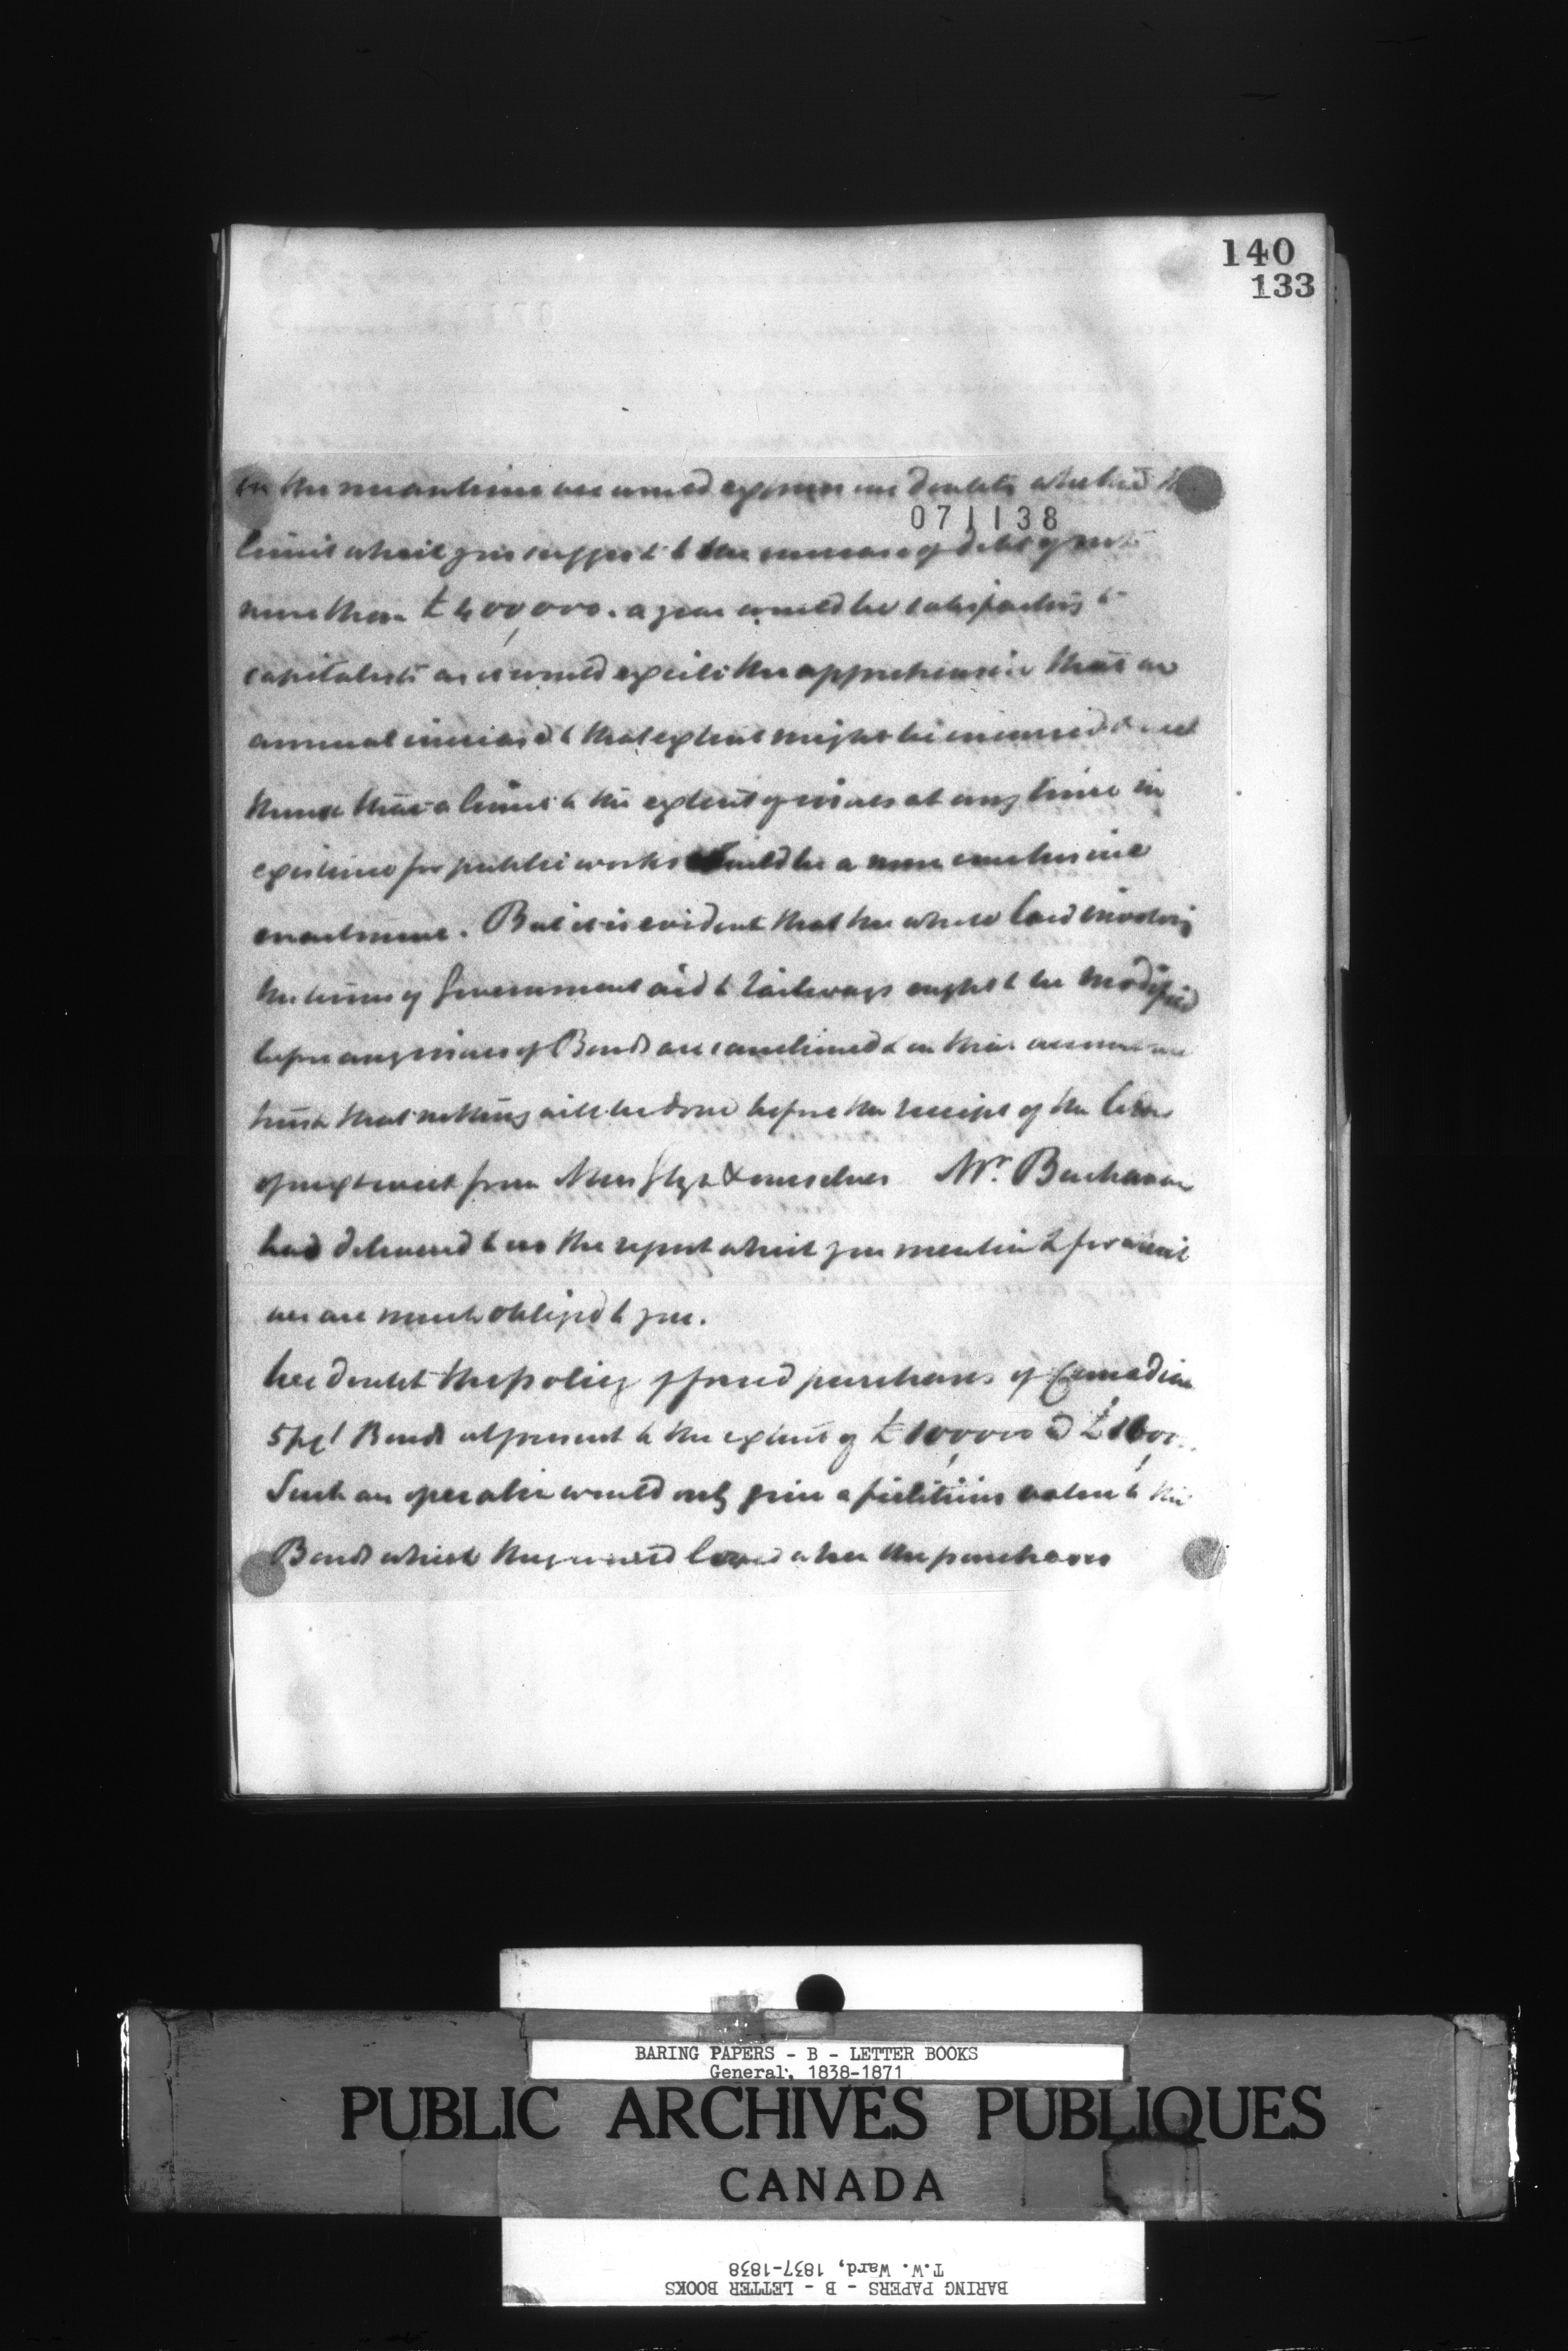 140
133
In the meantime we would express our doubts whether the
071138
limit which you suggest to the increase of debt of not
more than £400,000. a year would be satisfactory to
capitalists as it would excite the apprehension that an
annual increase to that extent might be incurred & we
think that a limit to the extent of issues at any time in
existence for public works would be a more conclusive
enactment. But it is evident that the whole law involving
the issue of Government aid to railways ought to be modified
before any issues of Bonds are sanctioned & on that account we
trust that nothing will be done before the receipt of the letter
of next week from Mess Glyn & ourselves Mr. Buchanan
had delivered to us the report which you mention & for which
we are much obliged to you.
We doubt the policy of forced purchases of Canadian
5 pct Bonds at present to the extent of £10,000 @
Such an operation would only give a fictitious value to the
Bonds which they would lose when the purchases
BARING PAPERS - B - LETTER BOOKS
General, 1838-1871
PUBLIC ARCHIVES PUBLIQUES
CANADA
BARING PAPERS - B - LETTER BOOKS
T.W. Ward, 1837-1838